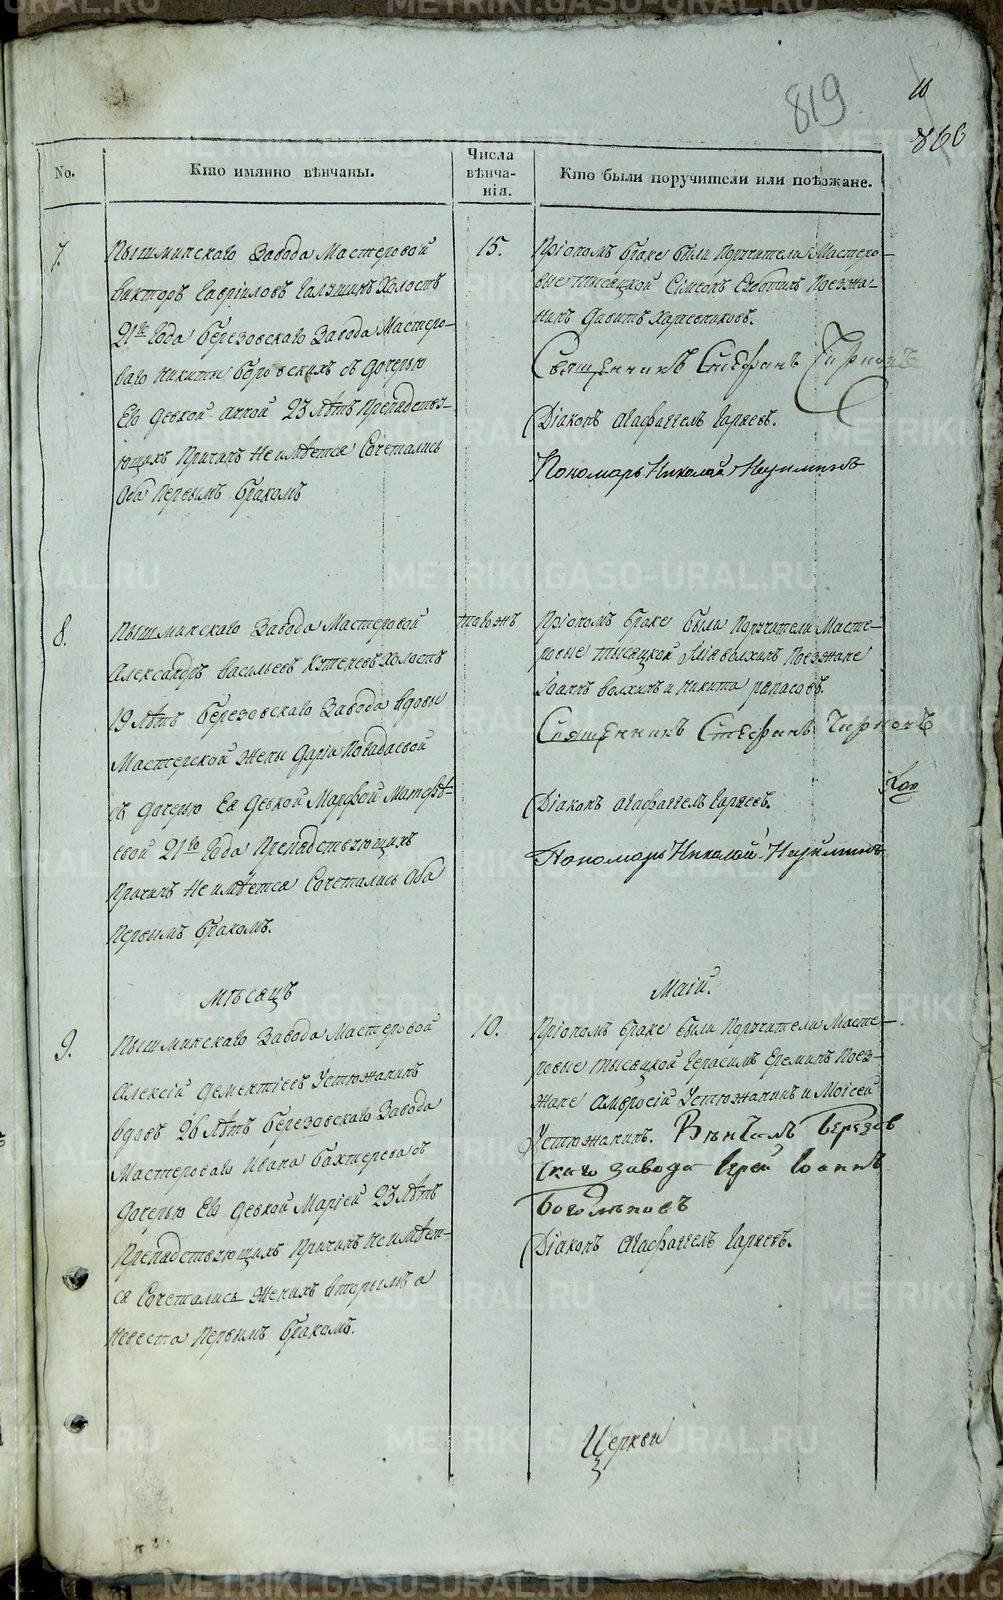 819
10
866
No.
Кто имянно вѣнчаны.
Числа
вѣнча-
нія.
Кто были поручители или поѣзжане.
7.
Пышминскаго Завода Мастеровой
Викторъ Гавріиловъ Галущинъ Холостъ
21го Года Березовскаго Завода Мастеро-
ваго Никиты Боровскихъ съ дочерью
Ево девкой Анной 23 Лѣтъ Препядствъ-
ющихъ Причинъ Не имѣется Сочетались
Оба Первымъ бракомъ
15.
Пріономъ браке были Поручители Мастеро-
вые тысяцкой Сімеонъ Поезжа-
нинъ Давитъ Харчевниковъ.
Священникъ Стефанъ Чирковъ
Діаконъ Агафангелъ Гаряевъ.
Пономарь Николай
8.
Пышминскаго Завода Мастеровой
Александръ Васильевъ Холостъ
19 Лѣтъ Березовскаго Завода вдовы
Мастерской Жены Дарьи
съ дочерью Ея девкой Марфой Матвѣ-
евой 21го Года Препядствующихъ
Причинъ Не имѣется Сочетались Оба
Первымъ бракомъ.
тогожъ
Пріономъ браке были Поручители Масте-
ровые тысяцкой Илія Волхинъ Поезжане
Іоаннъ Волхинъ и Никита
Священникъ Стефанъ Чирковъ
Діаконъ Агафангелъ Гаряевъ.
Пономарь Николай
Мѣсяцъ
Маій.
9.
Пышминскаго Завода Мастеровой
Алексій Дементіевъ Устюжанинъ
вдовъ 26 Лѣтъ Березовскаго Завода
Мастероваго Ивана Бахтерева съ
дочерью Ево девкой Маріей 23 Лѣтъ
Препядствующихъ Причинъ Не имѣет-
ся Сочетались Женихъ вторымъ а
Невеста Первымъ бракомъ.
10.
Пріономъ браке были Поручители Масте-
ровые тысяцкой Герасимъ Ереминъ Поез-
жане Амвросій Устюжанинъ и Моісей
Устюжанинъ. Вѣнчалъ Березов
скаго завода Іерей Іоаннъ
Боголѣповъ
Діаконъ Агафангелъ Гаряевъ.
Церкви